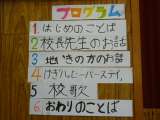 プログラム
1.はじめのことば
2 校長先生のお話
3 地いきの方のお話
4 げきハッピーバースデイ
5 校歌
6 おわりのことば